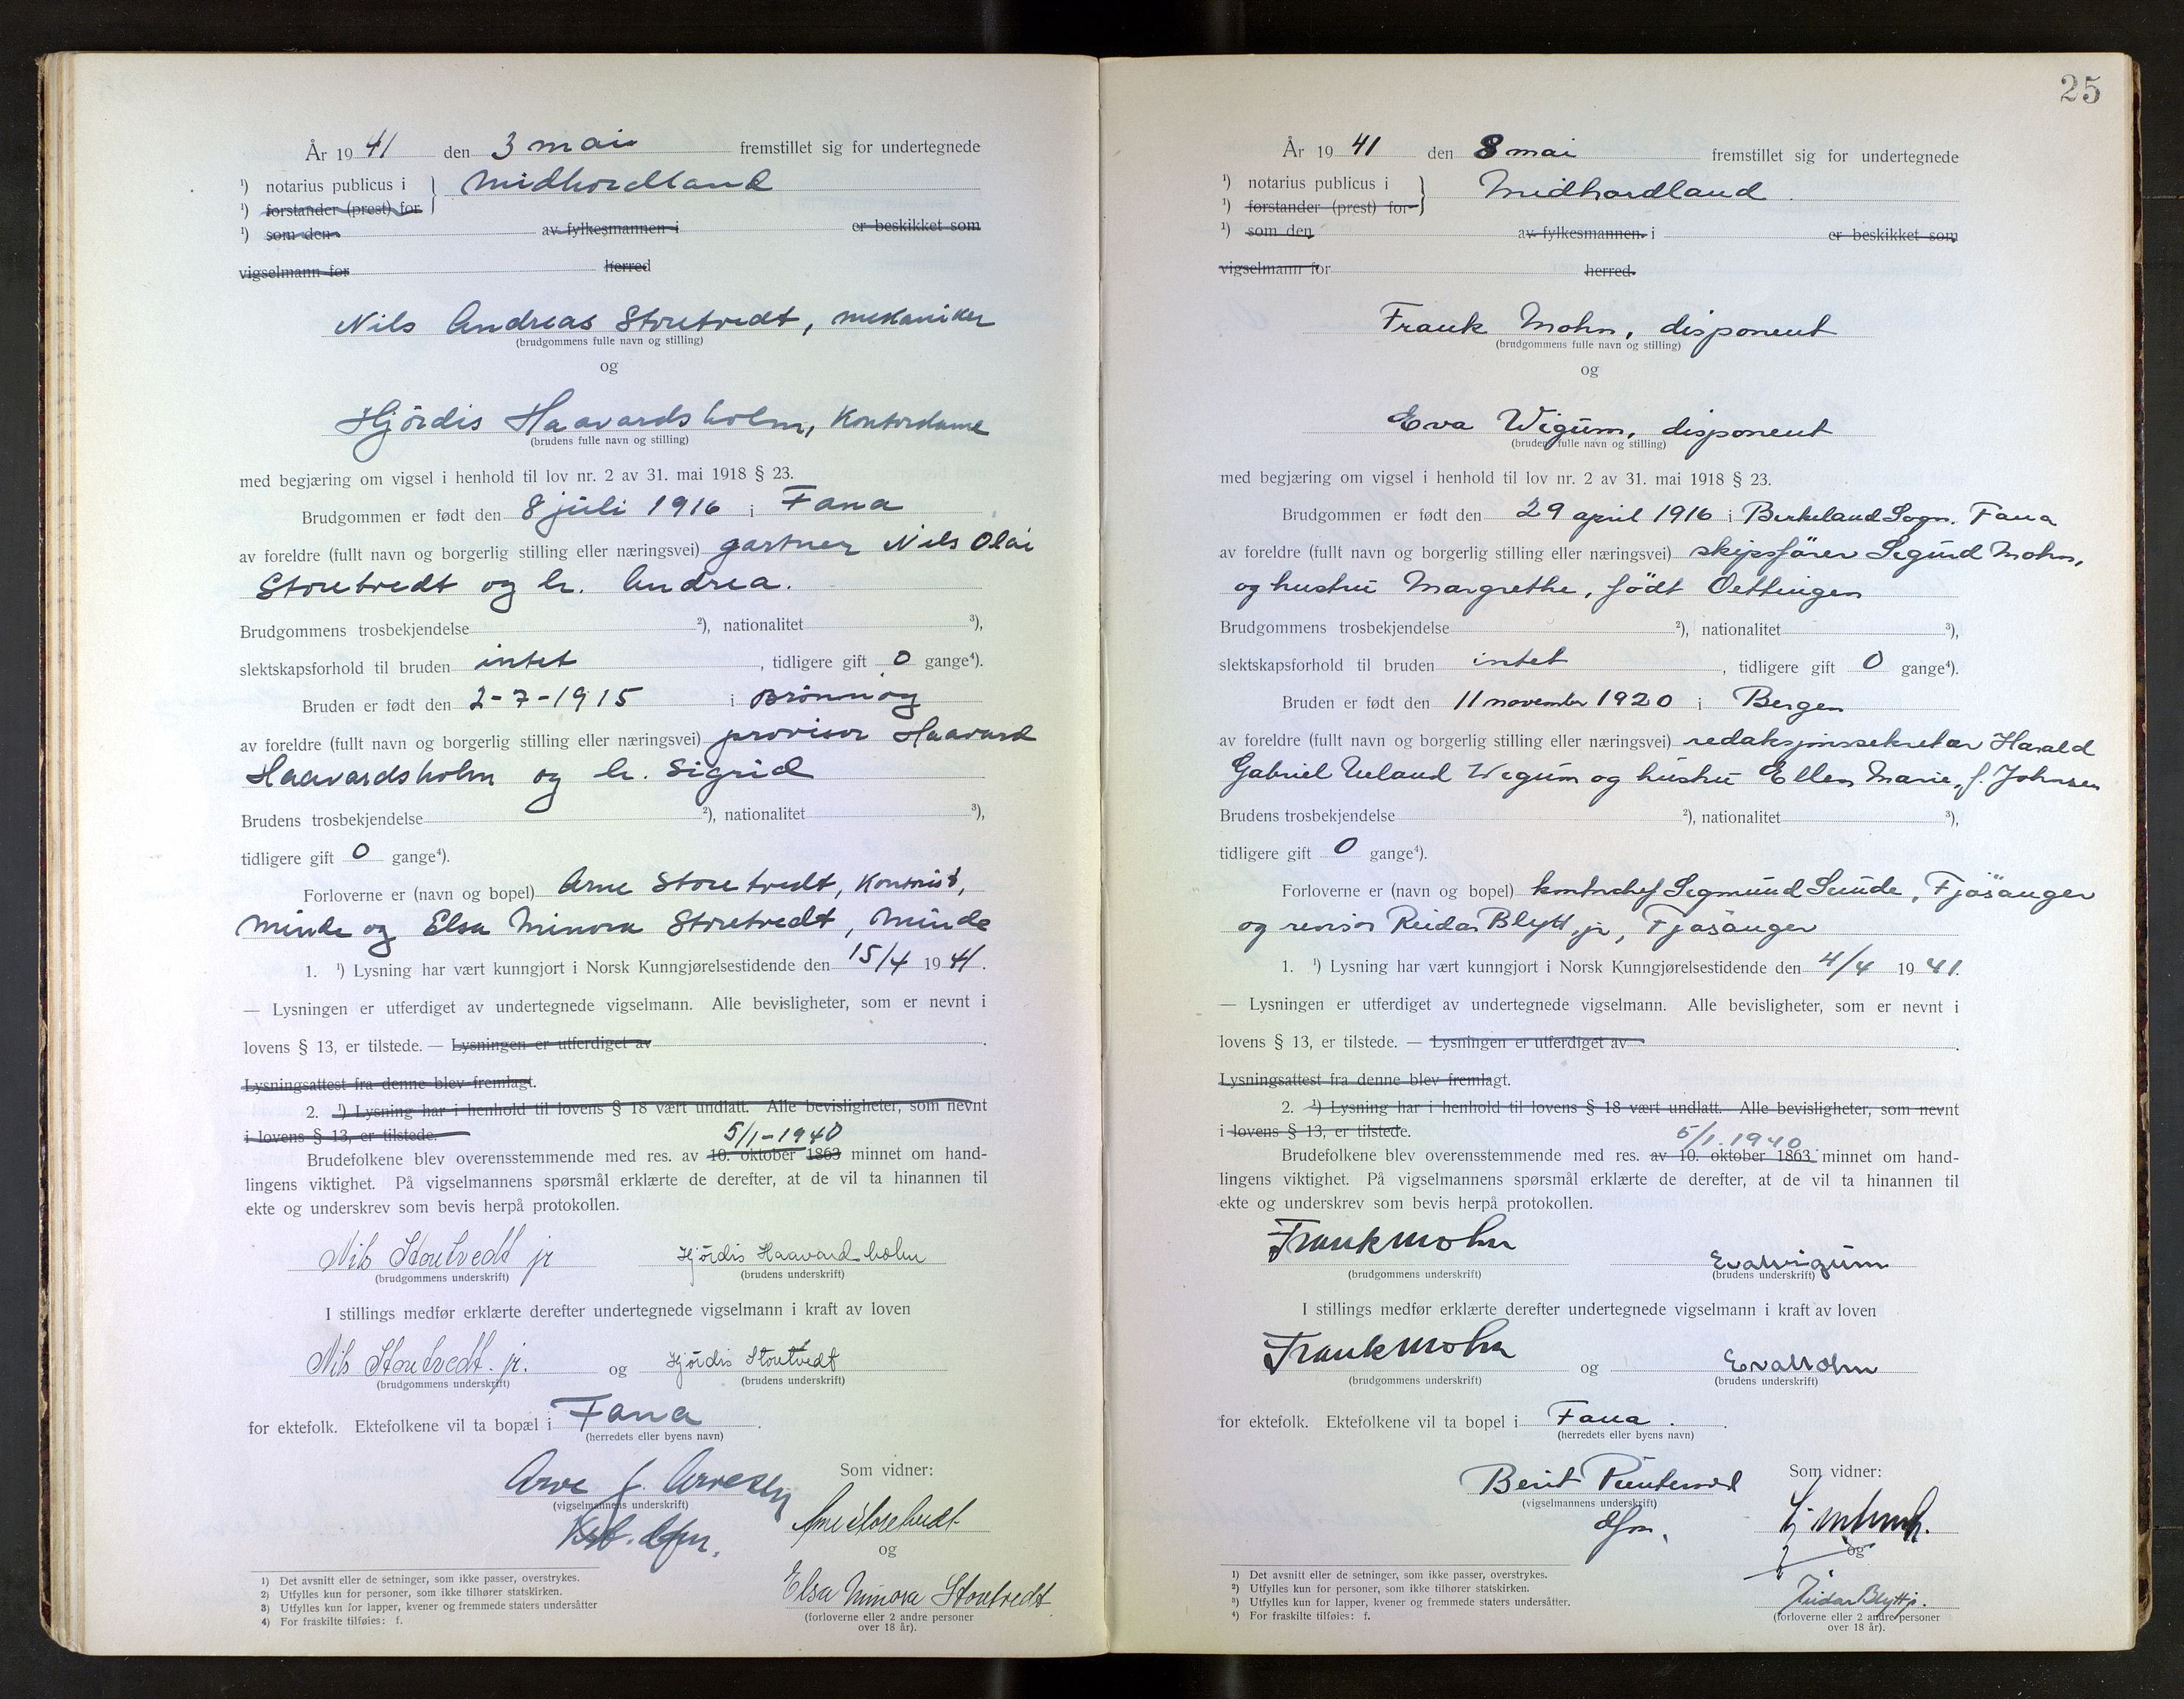 År 19 41 den 3 mai fremstillet sig for undertegnede
¹) notarius publicus i } Midhordland
¹) forstander (prest) for
¹) som den av fylkesmannen i er beskikket som
vigselmann for herred
Nils Andreas Storetvedt, mekaniker
(brudgommens fulle navn og stilling)
og
Hjördis Haavardsholm, Kontordame
(brudens fulle navn og stilling)
med begjæring om vigsel i henhold til lov nr. 2 av 31. mai 1918 § 23.
Brudgommen er født den 8 juli 1916 i Fana
av foreldre (fullt navn og borgerlig stilling eller næringsvei) gartner Nils Olai
Storetvedt og h. Andrea.
Brudgommens trosbekjendelse ²), nationalitet ³),
slektskapsforhold til bruden intet, tidligere gift 0 gange⁴).
Bruden er født den 2-7-1915 i Brönnöy
av foreldre (fullt navn og borgerlig stilling eller næringsvei) provisor Haavard
Haavardsholm og h. Sigrid
Brudens trosbekjendelse ²), nationalitet ³),
tidligere gift 0 gange⁴).
Forloverne er (navn og bopel) Arne Storetvedt, Kontorist,
Minde og Elsa Minora Storetvedt, Minde
1. ¹) Lysning har vært kunngjort i Norsk Kunngjørelsestidende den 15/4 19 41.
— Lysningen er utferdiget av undertegnede vigselmann. Alle bevisligheter, som er nevnt i
lovens § 13, er tilstede. — Lysningen er utferdiget av .
Lysningsattest fra denne blev fremlagt.
2. ¹) Lysning har i henhold til lovens § 18 vært undlatt. Alle bevisligheter, som nevnt
i lovens § 13, er tilstede.
5/1-1940
Brudefolkene blev overensstemmende med res. av 10. oktober 1863 minnet om hand-
lingens viktighet. På vigselmannens spørsmål erklærte de derefter, at de vil ta hinannen til
ekte og underskrev som bevis herpå protokollen.
Nils Storetvedt jr Hjördis Haavardsholm
(brudgommens underskrift) (brudens underskrift)
I stillings medfør erklærte derefter undertegnede vigselmann i kraft av loven
Nils Storetvedt. jr. og Hjördis Storetvedt
(brudgommens underskrift) (brudens underskrift)
for ektefolk. Ektefolkene vil ta bopæl i Fana.
(herredets eller byens navn)
Som vidner:
Arve
(vigselmannens underskrift)
Arne Storetvedt
og
Elsa Minora Storetvedt
(forloverne eller 2 andre personer
over 18 år).
¹) Det avsnitt eller de setninger, som ikke passer, overstrykes.
²) Utfylles kun for personer, som ikke tilhører statskirken.
³) Utfylles kun for lapper, kvener og fremmede staters undersåtter
⁴) For fraskilte tilføies: f.
25
År 19 41 den 8 mai fremstillet sig for undertegnede
¹) notarius publicus i } Midhordland.
¹) forstander (prest) for
¹) som den av fylkesmannen i er beskikket som
vigselmann for herred.
Frank Mohn, disponent
(brudgommens fulle navn og stilling)
og
Eva Wigum, disponent
(brudens fulle navn og stilling)
med begjæring om vigsel i henhold til lov nr. 2 av 31. mai 1918 § 23.
Brudgommen er født den 29 april 1916 i Birkeland Sogn. Fana
av foreldre (fullt navn og borgerlig stilling eller næringsvei) skipsförer Sigurd Mohn,
og hustru Margrethe, födt Oettingen
Brudgommens trosbekjendelse ²), nationalitet ³),
slektskapsforhold til bruden intet, tidligere gift 0 gange⁴).
Bruden er født den 11 november 1920 i Bergen
av foreldre (fullt navn og borgerlig stilling eller næringsvei) redaksjonssekretær Harald
Gabriel Ueland Wigum og hustru Ellen Marie, f. Johnsen
Brudens trosbekjendelse ²), nationalitet ³),
tidligere gift 0 gange⁴).
Forloverne er (navn og bopel) kontorchef Sigmund Sunde, Fjösanger
og revisor Reidar Blytt, jr, Fjösanger
1. ¹) Lysning har vært kunngjort i Norsk Kunngjørelsestidende den 4/4 19 41.
— Lysningen er utferdiget av undertegnede vigselmann. Alle bevisligheter, som er nevnt i
lovens § 13, er tilstede. — Lysningen er utferdiget av .
Lysningsattest fra denne blev fremlagt.
2. ¹) Lysning har i henhold til lovens § 18 vært undlatt. Alle bevisligheter, som nevnt
i lovens § 13, er tilstede.
5/1.1940
Brudefolkene blev overensstemmende med res. av 10. oktober 1863 minnet om hand-
lingens viktighet. På vigselmannens spørsmål erklærte de derefter, at de vil ta hinannen til
ekte og underskrev som bevis herpå protokollen.
Frank Mohn Eva Wigum
(brudgommens underskrift) (brudens underskrift)
I stillings medfør erklærte derefter undertegnede vigselmann i kraft av loven
Frank Mohn og Eva Mohn
(brudgommens underskrift) (brudens underskrift)
for ektefolk. Ektefolkene vil ta bopel i Fana.
(herredets eller byens navn)
Som vidner:
Berit
(vigselmannens underskrift)
og
Reidar Blytt jr.
(forloverne eller 2 andre personer
over 18 år).
¹) Det avsnitt eller de setninger, som ikke passer, overstrykes.
²) Utfylles kun for personer, som ikke tilhører statskirken.
³) Utfylles kun for lapper, kvener og fremmede staters undersåtter.
⁴) For fraskilte tilføies: f.